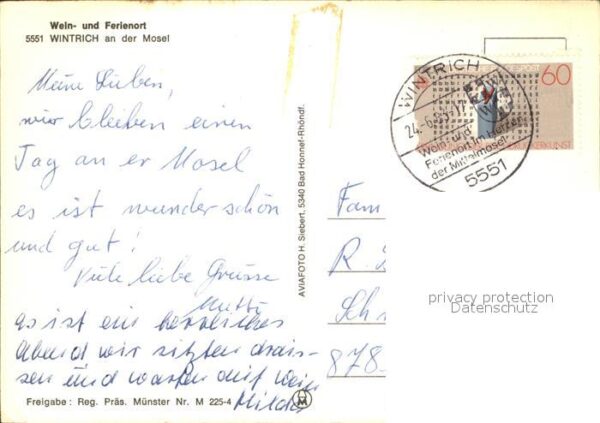 Wein- und Ferienort
5551 WINTRICH an der Mosel
Meine Lieben,
wir bleiben einen
Tag an er Mosel
es ist wunderschön
und gut!
Viele liebe Grüsse
Mutti
es ist ein herrliches
Abend wir sitzen draus-
sen und warten auf
Freigabe: Reg. Präs. Münster Nr. M 225-4
AVIAFOTO H. Siebert, 5340 Bad Honnef-Rhöndf.
WINTRICH
24.-6.85-17
Wein- und
Ferienort im Herzen
der Mittelmosel
5551
60
Fam
R.
Sch
878-
privacy protection
Datenschutz